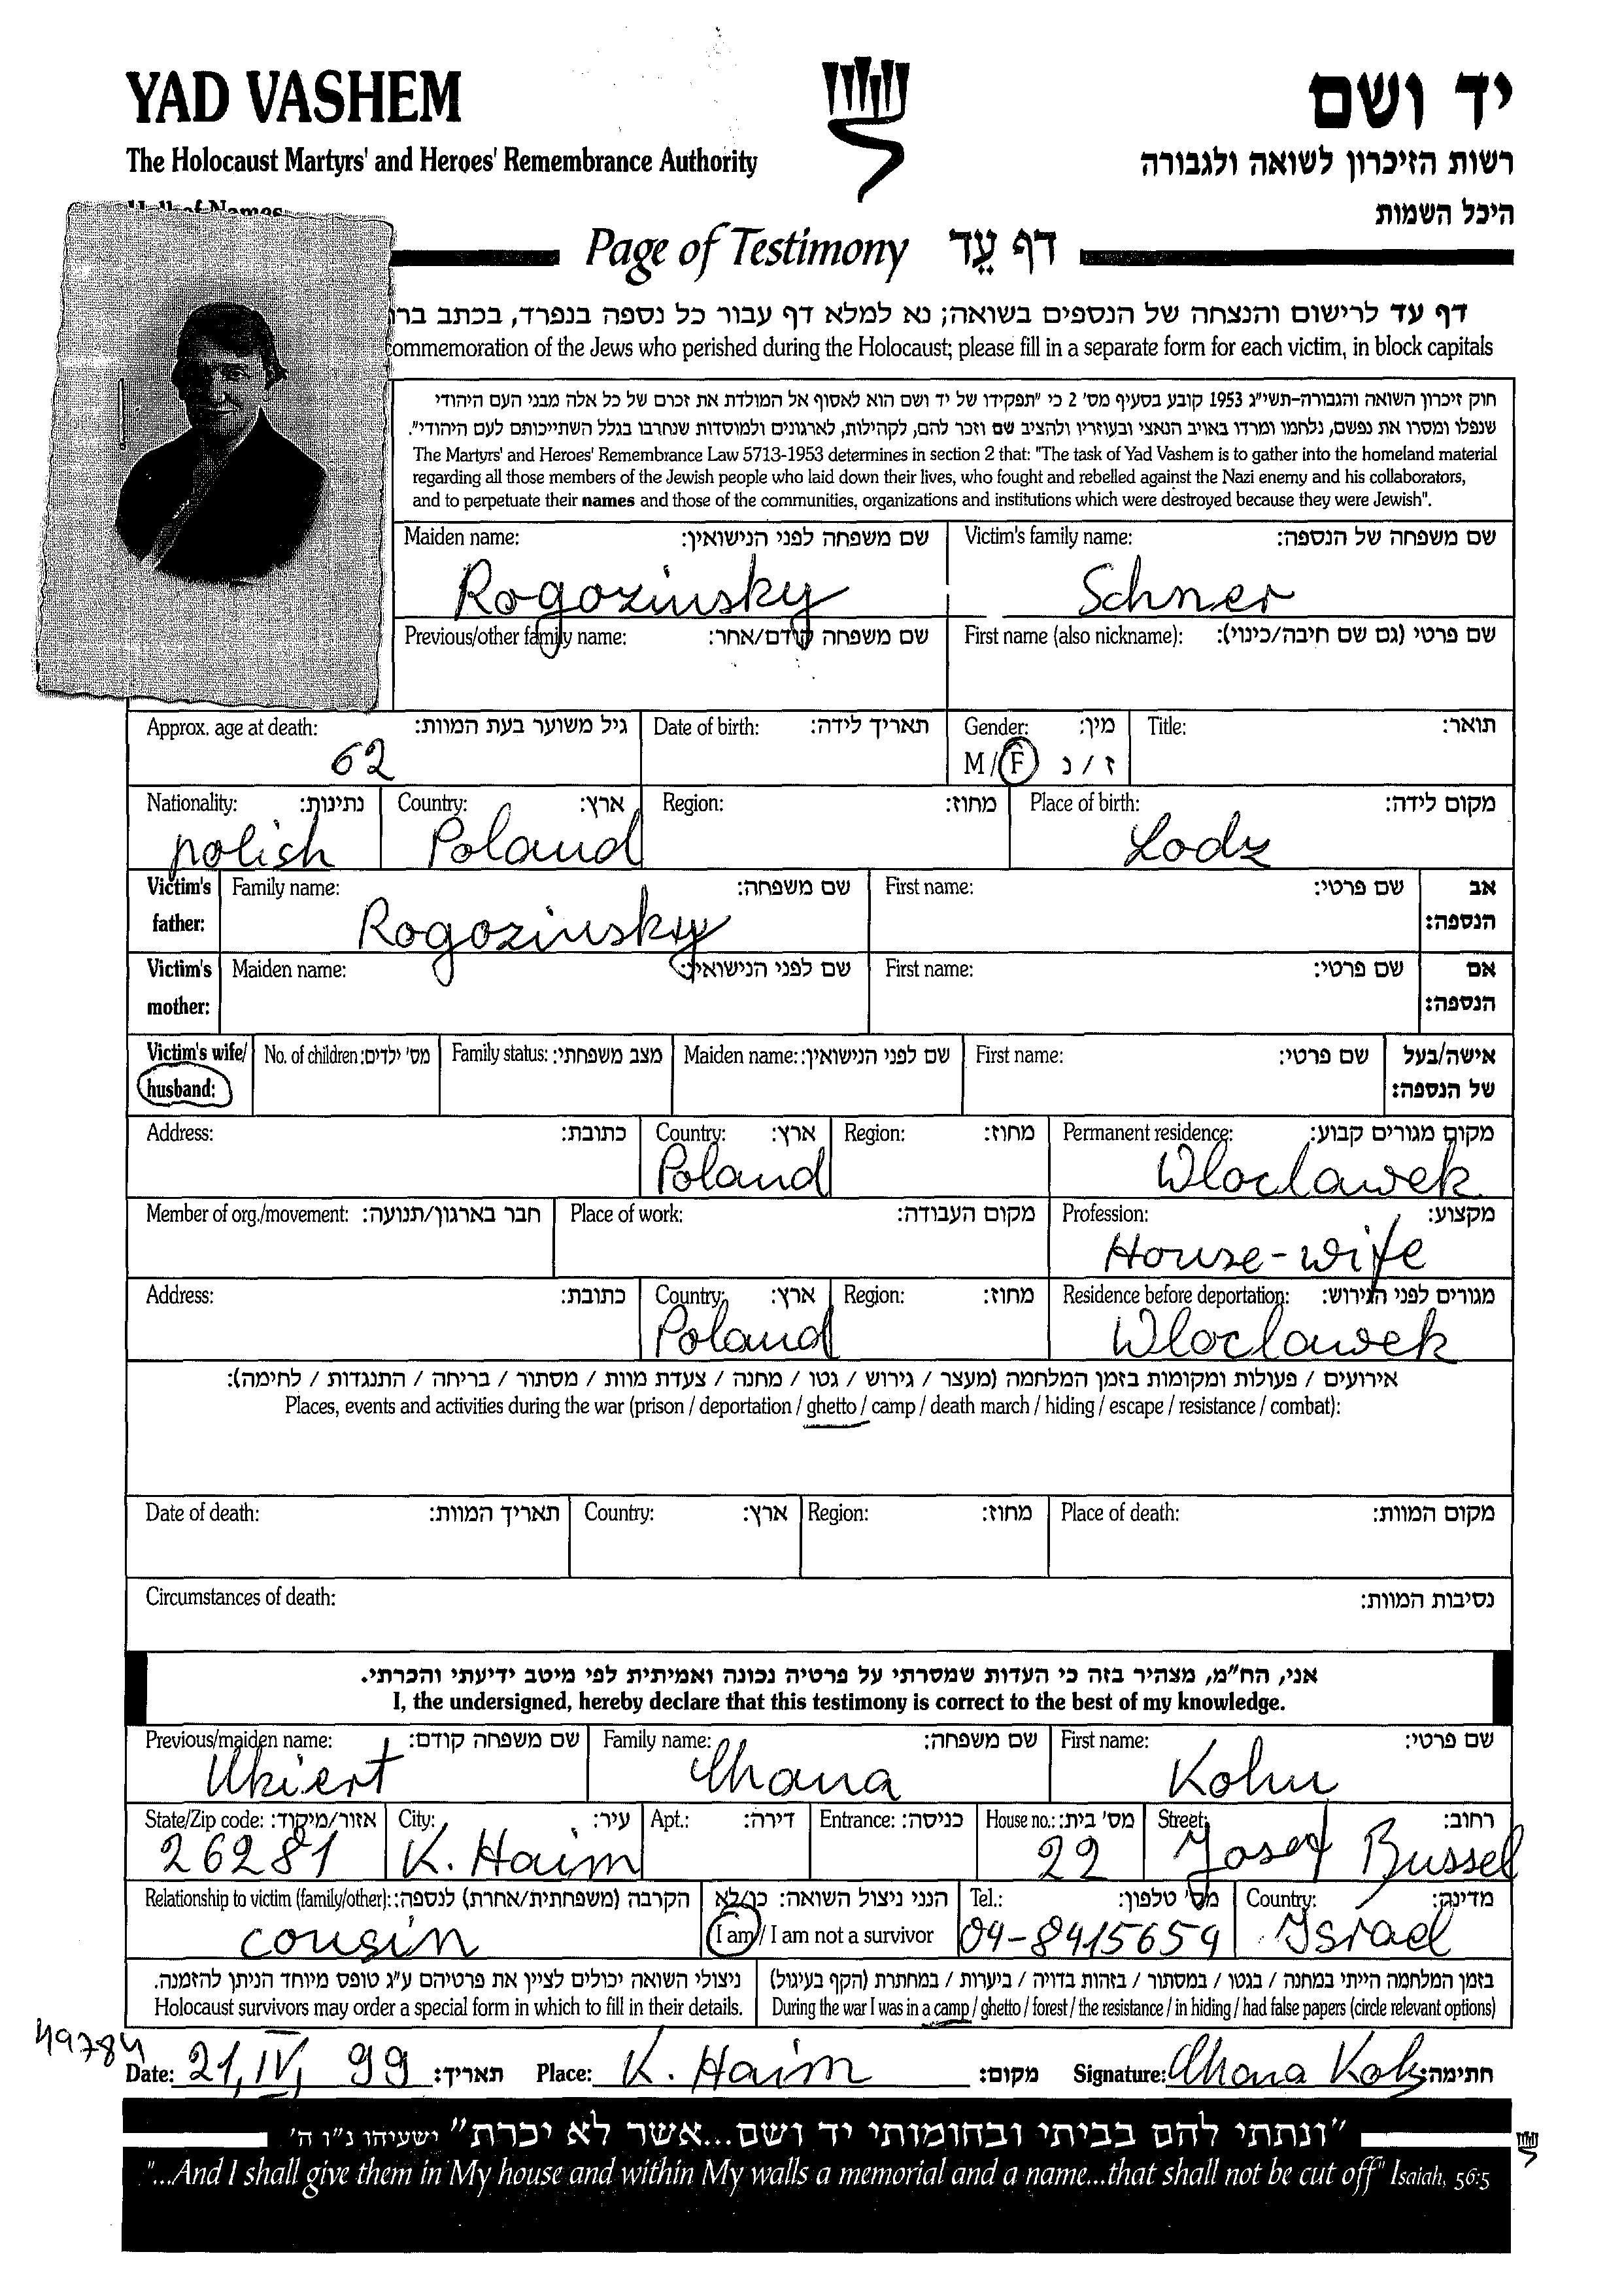 YAD VASHEM
יד ושם
The Holocaust Martyrs' and Heroes' Remembrance Authority
רשות הזיכרון לשואה ולגבורה
Hall of Names
היכל השמות
Page of Testimony דף עֵד
דף עד לרישום והנצחה של הנספים בשואה; נא למלא דף עבור כל נספה בנפרד, בכתב
commemoration of the Jews who perished during the Holocaust; please fill in a separate form for each victim, in block capitals
חוק זיכרון השואה והגבורה-תשי"ג 1953 קובע בסעיף מס' 2 כי "תפקידו של יד ושם הוא לאסוף אל המולדת את זכרם של כל אלה מבני העם היהודי
שנפלו ומסרו את נפשם, נלחמו ומרדו באויב הנאצי ובעוזריו ולהציב שם וזכר להם, לקהילות, לארגונים ולמוסדות שנחרבו בגלל השתייכותם לעם היהודי".
The Martyrs' and Heroes' Remembrance Law 5713-1953 determines in section 2 that: "The task of Yad Vashem is to gather into the homeland material
regarding all those members of the Jewish people who laid down their lives, who fought and rebelled against the Nazi enemy and his collaborators,
and to perpetuate their names and those of the communities, organizations and institutions which were destroyed because they were Jewish".
Maiden name: שם משפחה לפני הנישואין: Victim's family name: שם משפחה של הנספה:
Rogozinsky Schner
Previous/other family name: שם משפחה קודם/אחר: First name (also nickname): שם פרטי (גם שם חיבה/כינוי):
Approx. age at death: גיל משוער בעת המוות: Date of birth: תאריך לידה: Gender: מין: Title: תואר:
62 M / F ז / נ
Nationality: נתינות: Country: ארץ: Region: מחוז: Place of birth: מקום לידה:
polish Poland Lodz
Victim's father: Family name: שם משפחה: First name: שם פרטי: אב הנספה:
Rogozinsky
Victim's mother: Maiden name: שם לפני הנישואין: First name: שם פרטי: אם הנספה:
Victim's wife/ husband: No. of children: מס' ילדים: Family status: מצב משפחתי: Maiden name: שם לפני הנישואין: First name: שם פרטי: אישה/בעל של הנספה:
Address: כתובת: Country: ארץ: Region: מחוז: Permanent residence: מקום מגורים קבוע:
Poland Wloclawek
Member of org./movement: חבר בארגון/תנועה: Place of work: מקום העבודה: Profession: מקצוע:
House-wife
Address: כתובת: Country: ארץ: Region: מחוז: Residence before deportation: מגורים לפני הגירוש:
Poland Wloclawek
אירועים / פעולות ומקומות בזמן המלחמה (מעצר / גירוש / גטו / מחנה / צעדת מוות / מסתור / בריחה / התנגדות / לחימה):
Places, events and activities during the war (prison / deportation / ghetto / camp / death march / hiding / escape / resistance / combat):
Date of death: תאריך המוות: Country: ארץ: Region: מחוז: Place of death: מקום המוות:
Circumstances of death: נסיבות המוות:
אני, הח"מ, מצהיר בזה כי העדות שמסרתי על פרטיה נכונה ואמיתית לפי מיטב ידיעתי והכרתי.
I, the undersigned, hereby declare that this testimony is correct to the best of my knowledge.
Previous/maiden name: שם משפחה קודם: Family name: שם משפחה: First name: שם פרטי:
Ukiert Chana Kohn
State/Zip code: אזור/מיקוד: City: עיר: Apt.: דירה: Entrance: כניסה: House no.: מס' בית: Street: רחוב:
26281 K. Haim 22 Josef Bussel
Relationship to victim (family/other): הקרבה (משפחתית/אחרת) לנספה: הנני ניצול השואה: כן/לא Tel.: מס' טלפון: Country: מדינה:
cousin I am / I am not a survivor 04-8415659 Israel
ניצולי השואה יכולים לציין את פרטיהם ע"ג טופס מיוחד הניתן להזמנה. בזמן המלחמה הייתי במחנה / בגטו / במסתור / בזהות בדויה / ביערות / במחתרת (הקף בעיגול)
Holocaust survivors may order a special form in which to fill in their details. During the war I was in a camp / ghetto / forest / the resistance / in hiding / had false papers (circle relevant options)
49784
Date: 21, IV, 99 תאריך: Place: K. Haim מקום: Signature: Chana Kohn חתימה:
"ונתתי להם בביתי ובחומותי יד ושם...אשר לא יכרת" ישעיהו נ"ו ה'
"...And I shall give them in My house and within My walls a memorial and a name...that shall not be cut off" Isaiah, 56:5